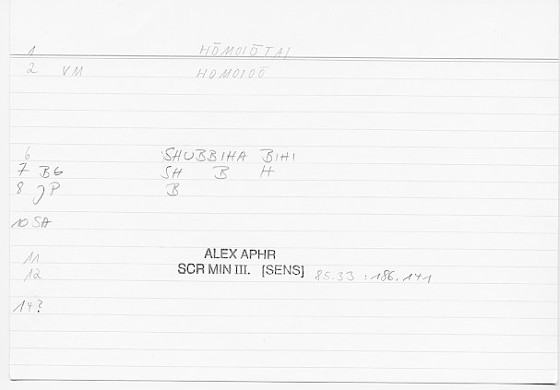 1 HŌMOIŌTAI
2 VM HOMOIOŌ
6 SHUBBIHA BIHI
7 BG SH B H
8 JP B
10 SA
11 ALEX APHR
12 SCR MIN III. [SENS] 85.33 : 186.141
14?